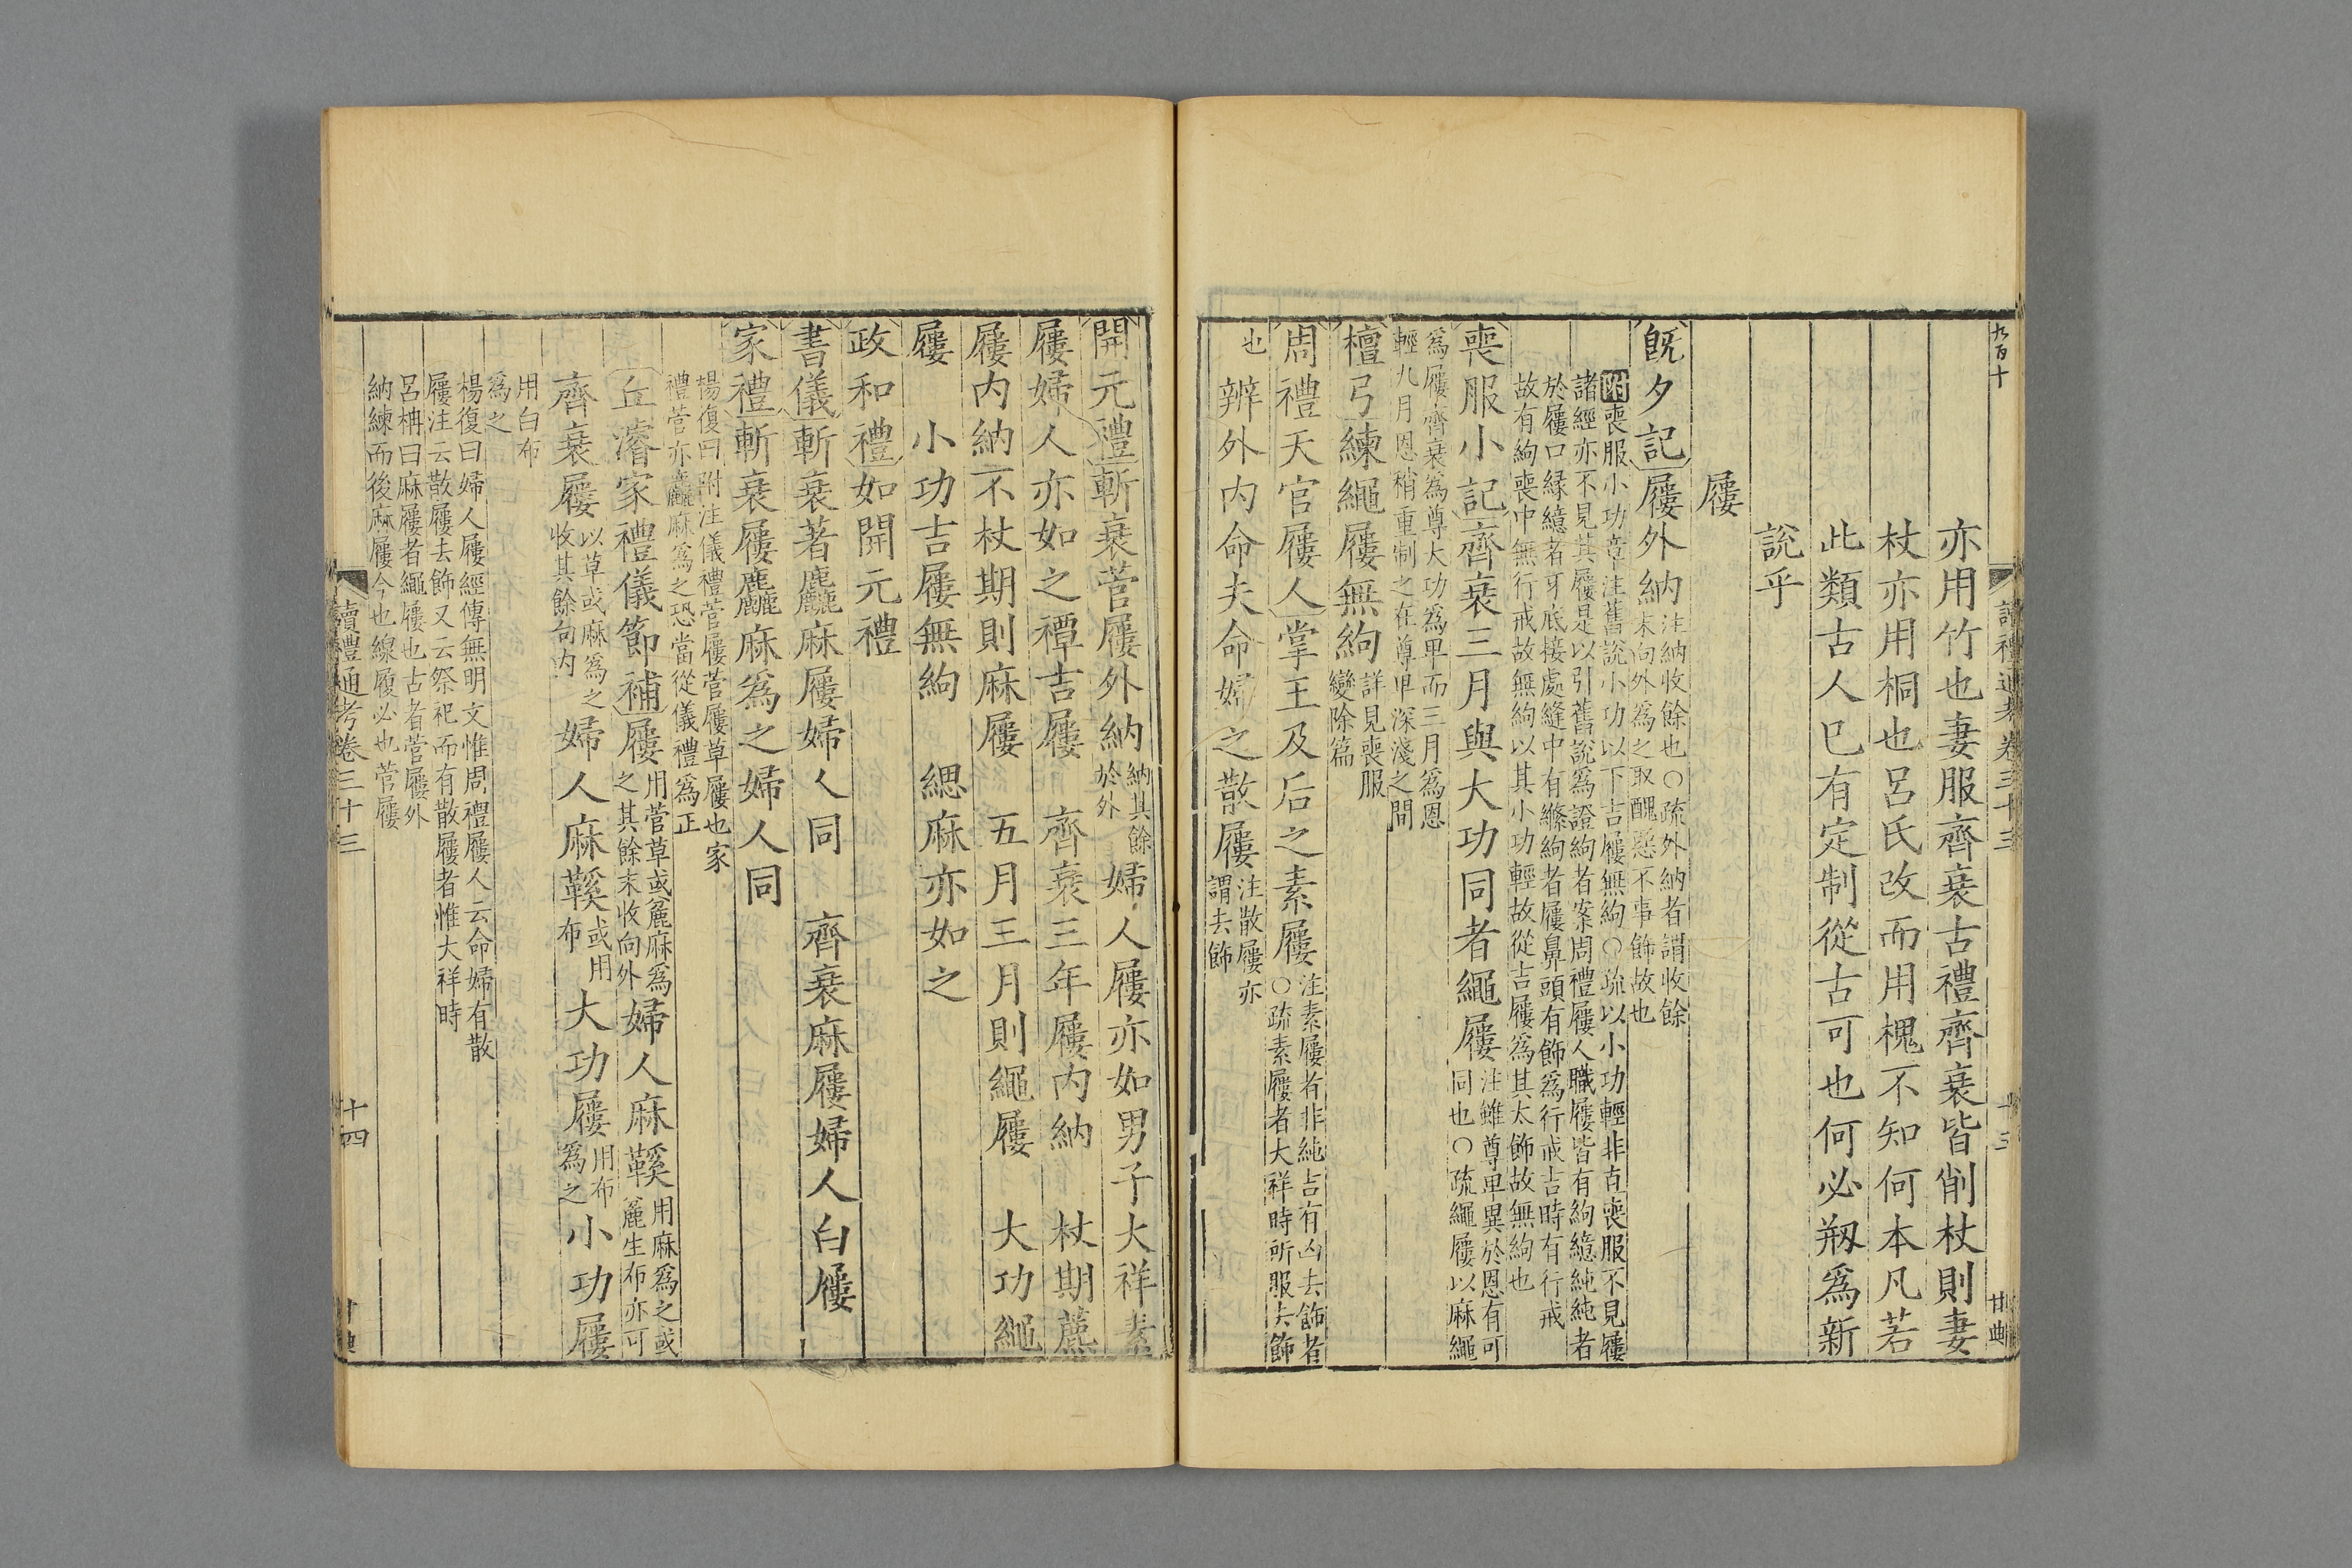 九百十
讀禮通考卷三十三
十三
甘典
亦用竹也妻服齊衰古禮齊衰皆削杖則妻
杖亦用桐也呂氏改而用槐不知何本凡若
此類古人已有定制從古可也何必剏爲新
說乎
屨
旣夕記屨外納
注納收餘也○疏外納者謂收餘
末向外爲之取醜惡不事飾故也
附喪服小功章注舊說小功以下吉屨無絇○疏以小功輕非直喪服不見屨
諸經亦不見其屨是以引舊說爲證絇者案周禮屨人職屨皆有絇繶純純者
於屨口縁繶者牙底接處縫中有絛絇者屨鼻頭有飾爲行戒吉時有行戒
故有絇喪中無行戒故無絇以其小功輕故從吉屨爲其太飾故無絇也
喪服小記齊衰三月與大功同者繩屨
注雖尊卑異於恩有可
同也○疏繩屨以麻繩
爲屨齊衰爲尊大功爲卑而三月爲恩
輕九月恩稍重制之在尊卑深淺之間
檀弓練繩屨無絇
詳見喪服
變除篇
周禮天官屨人掌王及后之素屨
注素屨者非純吉有凶去飾者
○疏素屨者大祥時所服去飾
也
辨外內命夫命婦之散屨
注散屨亦
謂去飾
開元禮斬衰菅屨外納
納其餘
於外
婦人屨亦如男子大祥素
屨婦人亦如之禫吉屨　齊衰三年屨內納　杖期藨
屨內納不杖期則麻屨　五月三月則繩屨　大功繩
屨　小功吉屨無絇　緦麻亦如之
政和禮如開元禮
書儀斬衰著麤麻屨婦人同　齊衰麻屨婦人白屨
家禮斬衰屨麤麻爲之婦人同
楊復曰附注儀禮菅屨菅屨草屨也家
禮菅亦麤麻爲之恐當從儀禮爲正
丘濬家禮儀節補屨
用菅草或麄麻爲
之其餘末收向外
婦人麻鞵
用麻爲之或
麄生布亦可
齊衰屨
以草或麻爲之
收其餘向內
婦人麻鞵
或用
布
大功屨
用布
爲之
小功屨
用白布
爲之
楊復曰婦人屨經傳無明文惟周禮屨人云命婦有散
屨注云散屨去飾又云祭祀而有散屨者惟大祥時
呂柟曰麻屨者繩屨也古者菅屨外
納練而後麻屨今也線履必也菅屨
讀禮通考卷三十三
十四
甘典